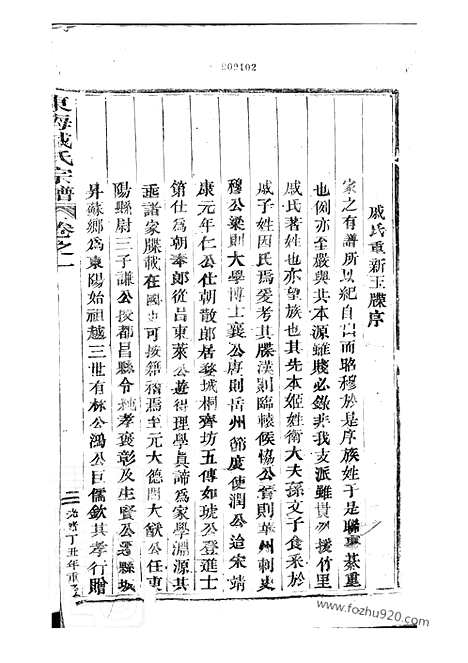 202102
戚氏重新玉牒序
家之有譜所以紀自出而昭穆於是序族姓于是聯事綦重
也例亦至嚴與其本源雖賤必錄非我支派雖貴勿援竹里
戚氏著姓也亦望族也其先本姬姓衛大夫孫文子食采於
戚子姓因氏焉爰考其牒漢則臨轅侯恊公晉則華州刺史
穆公梁則大學博士襄公唐則岳州節度使潤公迨宋靖
康元年仁公仕朝散郎居婺城桐齊坊五傳如琥公登進士
第仕為朝奉郎從呂東萊公遊得理學真諦為家學淵源其
諸家牒載在國史可按籍稽焉至元大德間大猷公任東
陽縣尉三子謙公授都昌縣令純孝褒彰及生賢公遷縣城
昇蘇鄉為東陽始祖越三世有林公鴻公巨儒欽其孝行贈
東海戚氏宗譜 卷之一
二 光緒丁丑年重
www.fozhu920.com